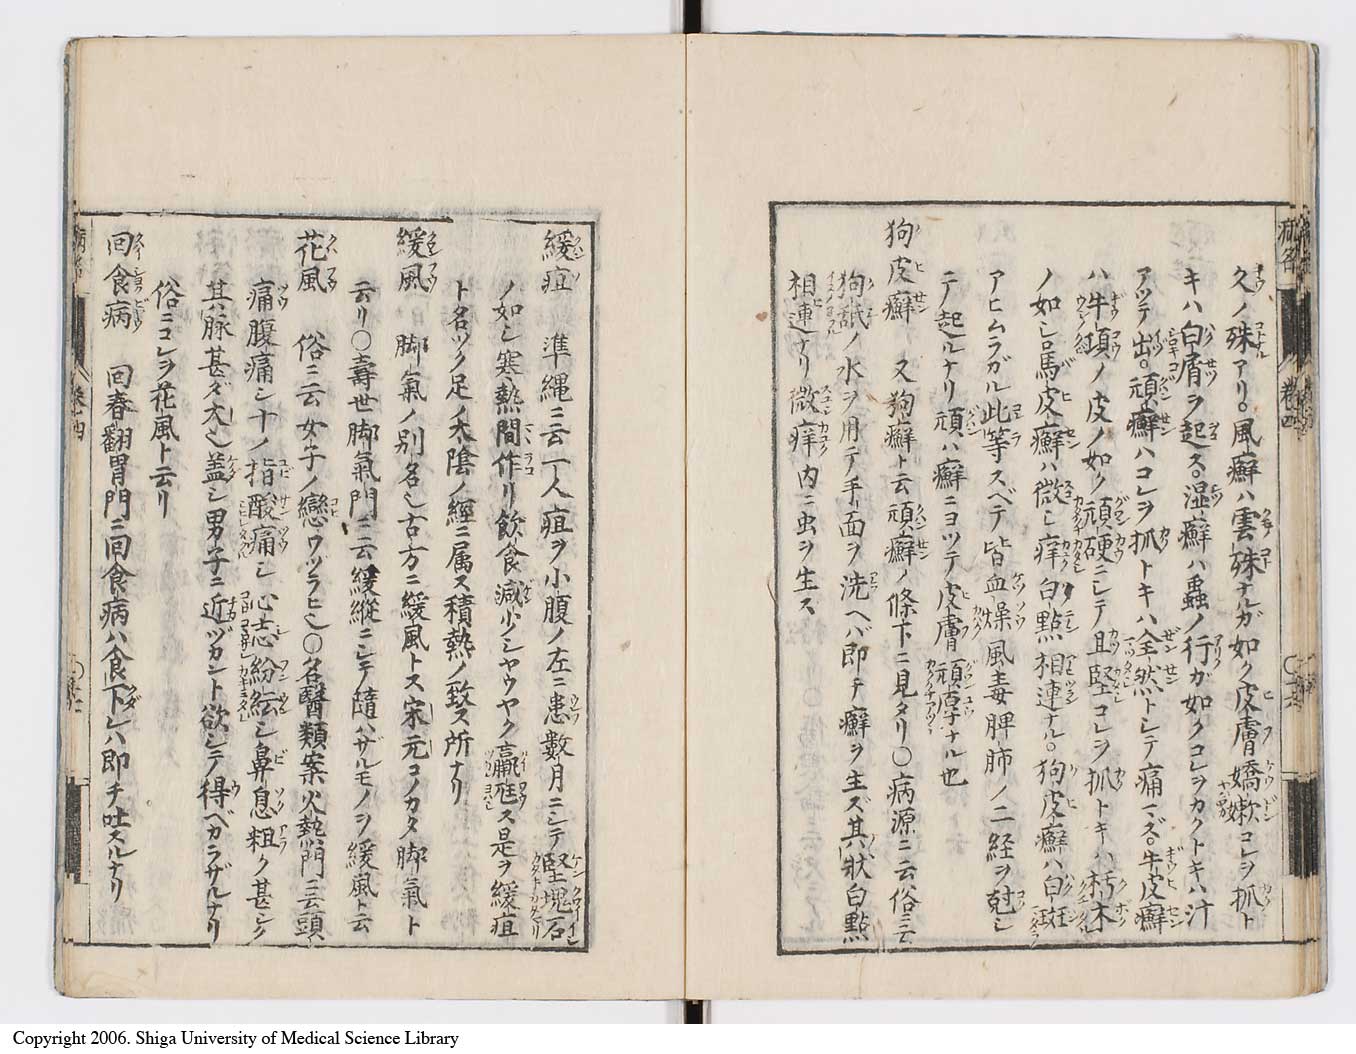 久ノ殊アリ。風癬ハ雲殊ナルガ如ク皮膚嬌嫰コレヲ抓ト
キハ白屑ヲ起ス。湿癬ハ蟲ノ行ガ如クコレヲカクトキハ汁
アツテ出。頑癬ハコレヲ抓トキハ全然トシテ痛マズ。牛皮癬
ハ牛項ノ皮ノ如ク頑硬ニシテ且堅コレヲ抓トキハ朽木
ノ如シ馬皮癬ハ微シ痒白點相連ナル。狗皮癬ハ白斑
アヒムラガル此等スベテ皆血燥風毒脾肺ノ二経ヲ尅シ
テ起ルナリ頑ハ癬ニヨツテ皮膚頑厚ナル也
狗皮癬 又狗癬ト云頑癬ノ條下ニ見タリ〇病源ニ云俗ニ云
狗舐ノ水ヲ用テ手面ヲ洗ヘバ即チ癬ヲ生ズ其状白點
相連ナリ微痒内ニ虫ヲ生ス
病名 卷四
緩疽 準縄ニ云一人疽ヲ小腹ノ左ニ患數月ニシテ堅塊石
ノ如シ寒熱間作リ飲食減少シヤウヤク羸尫ス是ヲ緩疽
ト名ツク足ノ太陰ノ經ニ属ス積熱ノ致ス所ナリ
緩風 脚氣ノ別名也古方ニ緩風トス宋元コノカタ脚氣ト
云リ〇壽世脚氣門ニ云緩縱ニシテ隨ハザルモノヲ緩風ト云
花風 俗ニ云女子ノ戀ワツラヒ也〇名醫類案火熱門ニ云頭
痛腹痛シ十ノ指酸痛シ心志紛紜シ鼻息粗ク甚シク
其ハ脉甚ダ大也蓋シ男子ニ近ヅカント欲シテ得ベカラザルナリ
俗ニコレヲ花風ト云リ
回食病 回春翻胃門ニ回食病ハ食下レハ即チ吐スルナリ
Copyright 2006. Shiga University of Medical Science Library